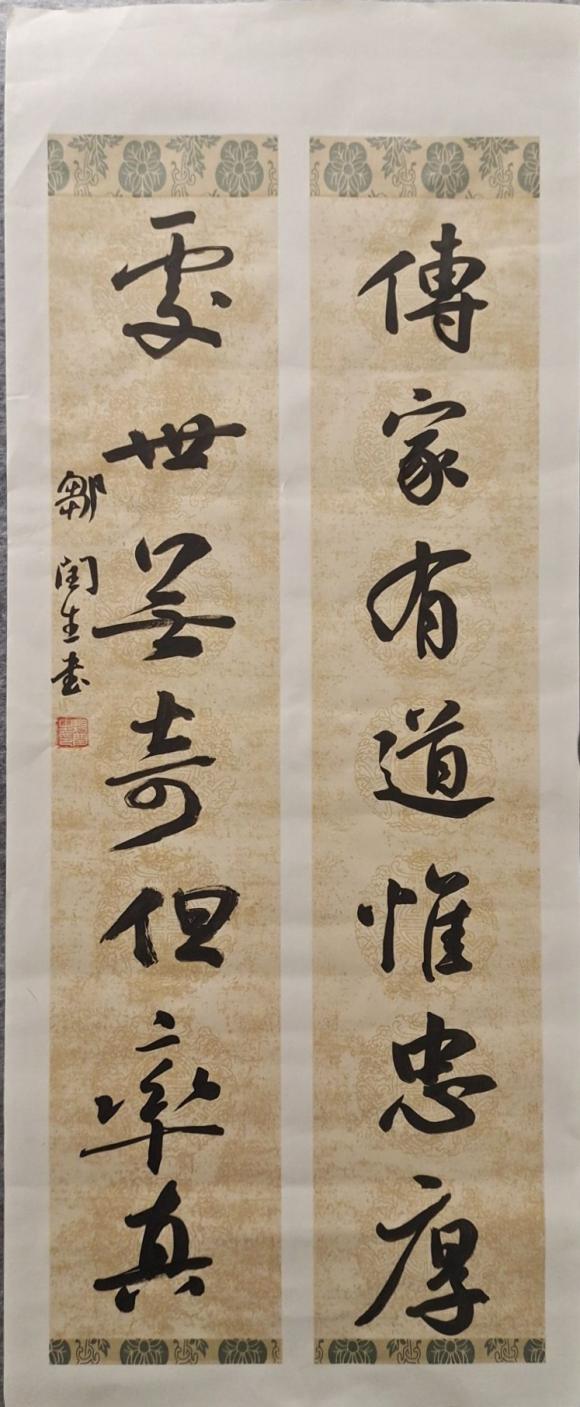 傳家有道惟忠厚
處世無奇但率真
鄒閏生書